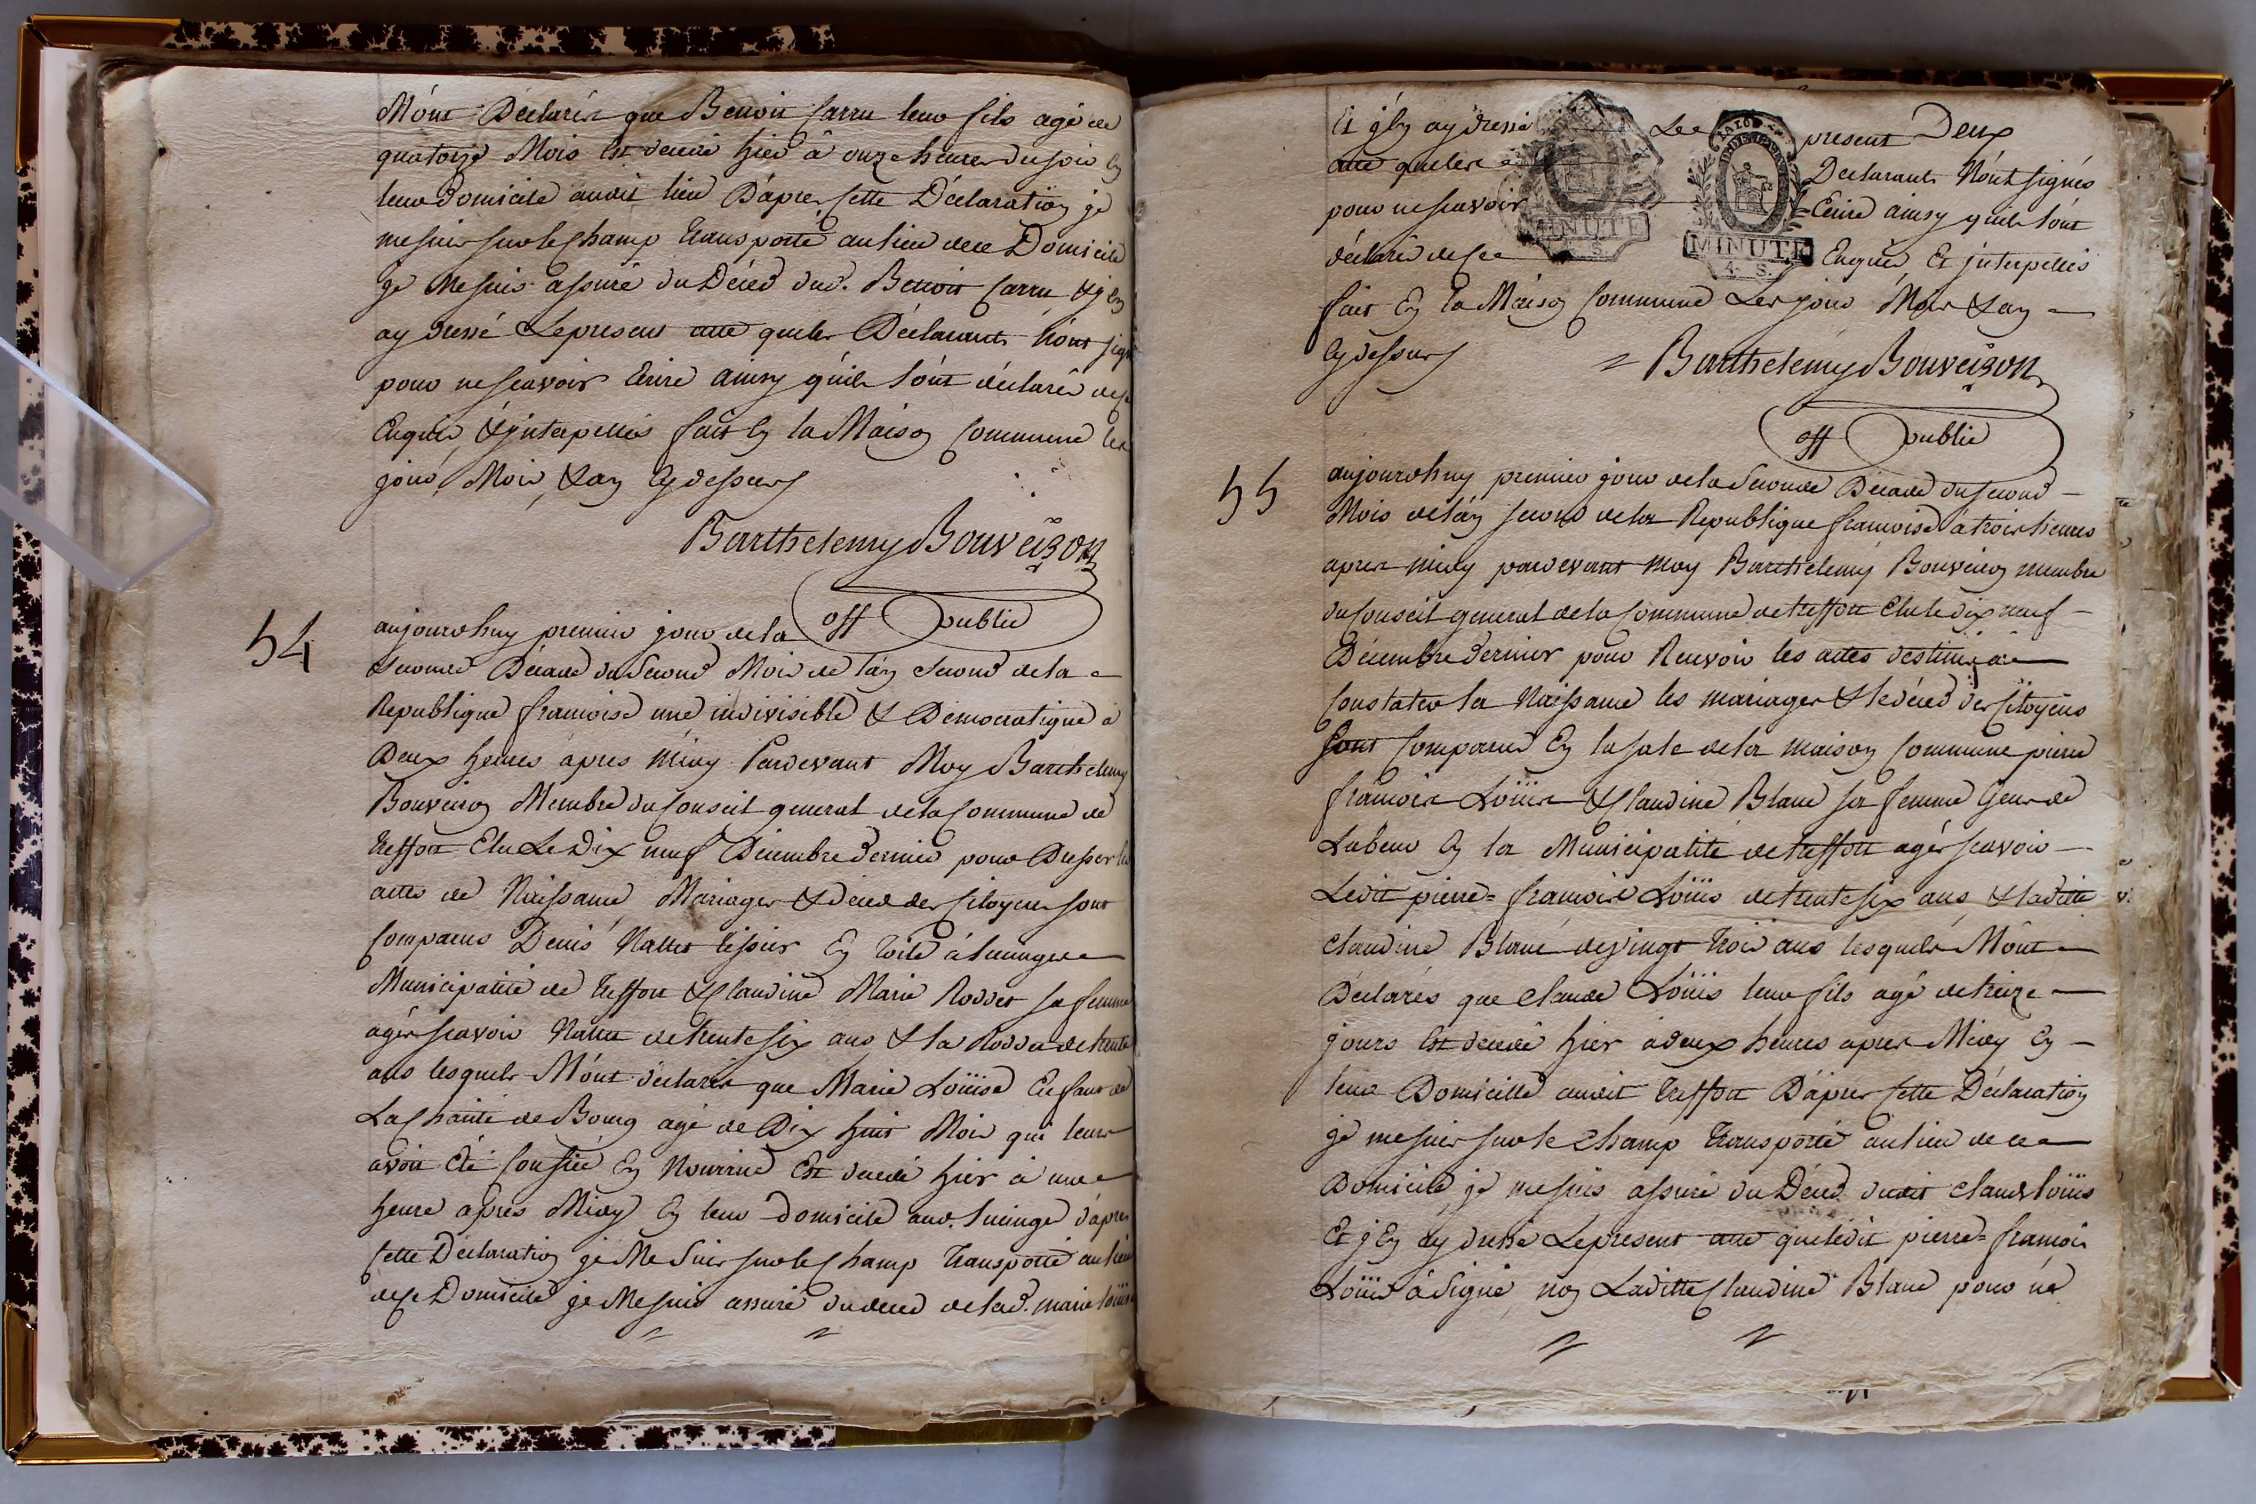 Mónt Déclarés que Benoit Carru leur fils agé de
quatorze Mois Est décédé hier à onze heures du soir En
leur Domicile audit lieu D'après Cette Déclaration je
me suis sur le Champ transporté au lieu de ce Domicile
je me suis assuré du Décès dud. Benoit Carru & j'en
ay dressé Le present acte que les Déclarants n'ont signé
pour ne scavoir Ecrire ainsy qu'ils l'ónt déclaré de ce
Enquis & jnterpellés fait En la Maison Commune les
jour, Mois, & an Cy dessus
Barthelemy Bouveiron
off public
54
aujourdhuy premier jour de la
seconde Décade du Second Mois de l'an second de la
Republique francoise une indivisible & Democratique à
Deux heures après midy Pardevant Moy Barthelemy
Bouveiron Membre du Conseil general de la Commune de
treffort Elu Le Dix neuf Décembre dernier pour Dresser les
actes de Naissance Mariages & décès des Citoyens sont
Comparus Denis Nallet tissier En toile à lucinges
Municipalité de treffort & Claudine Marie Roddet sa femme
agés scavoir Nallet de trente six ans & la Roddet de trente
ans lesquels M'ónt déclarés que Marie Loüise Enfant de
La Charité de Bourg agé de Dix huit Mois qui leur
avoit Eté Confiée En Nourrice Est décédé hier à une
heure après Midy En leur domicile aud. lucinge d'après
Cette Déclaration je Me Suis sur le Champ transporté au lieu
de ce Domicile je Me suis assuré du décès de lad. marie loüise
Et j'En ay dressé Le present Deux
acte que les Declarants N'ónt signés
pour ne scavoir Ecrire ainsy qu'ils l'ónt
déclaré de ce Enquis Et jnterpellés
fait En la Maison Commune Les jour Mois & an
Cy dessus Barthelemy Bouveiron
off public
MINUTE
MINUTE
4. S.
55
aujourdhuy premier jour de la Seconde Décade du second
Mois de l'an second de la Republique francoise à trois heures
après midy pardevant moy Barthelemy Bouveiron membre
du Conseil general de la Commune de treffort Elu le dix neuf
Décembre dernier pour Recevoir les actes destinés à
Constater la Naissance les mariages & le décès des Citoyens
sont Comparus En la sale de la maison Commune pierre
francois Loüis & Claudine Blanc sa femme Gens de
Labeur En la Municipalité de treffort agés scavoir
Ledit pierre= francois Loüis de trente six ans & ladite
Claudine Blanc de vingt trois ans lesquels M'ónt
Déclarés que Claude Loüis leur fils agé de treize
jours Est décédé hier à deux heures apres Midy En
leur Domicille audit treffort D'après Cette Déclaration
je me suis sur le champ transporté au lieu de ce
Domicile je me suis assuré du Décès dudit Claude loüis
Et j'En ay dressé Le present acte que ledit pierre= francois
Loüis à Signé non Laditte Claudine Blanc pour ne